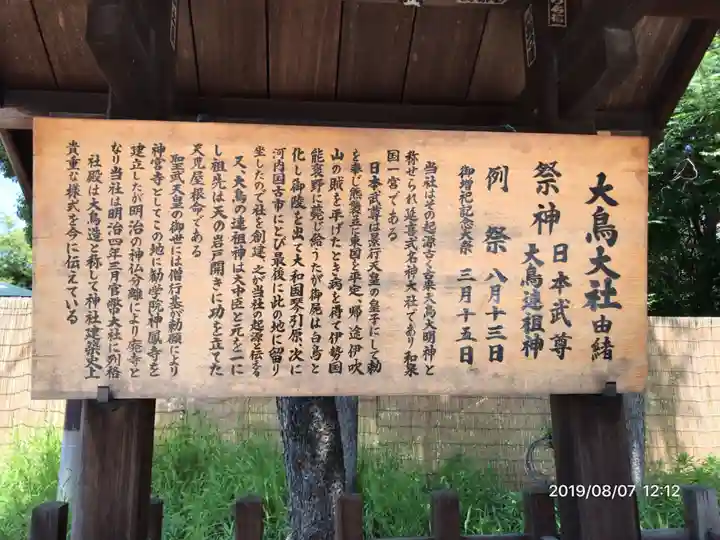 大鳥大社由緒
祭神 日本武尊
大鳥連祖神
例祭 八月十三日
御増祀記念大祭 三月十五日
当社はその起源古く、古来大鳥大明神と
称せられ延喜式名神大社であり和泉
国一宮である
日本武尊は景行天皇の皇子にして勅
を奉じ熊襲並に東国を平定、帰途伊吹
山の賊を平げたとき病を得て伊勢国
能褒野に薨じ給うたが御屍は白鳥と
化し御陵を出て大和国琴引原、次に
河内国古市にとび最後に此の地に留り
坐したので社を創建、之が当社の起源と伝える
又、大鳥の連祖神は大中臣と元を一に
し祖先は天の岩戸開きに功を立てた
天児屋根命である
聖武天皇の御世には僧行基が勅願により
神宮寺としてこの地に勧学院神鳳寺を
建立したが明治の神仏分離により廃寺と
なり当社は明治四年三月官幣大社に列格
社殿は大鳥造と称して神社建築史上
貴重な様式を今に伝えている
2019/08/07 12:12